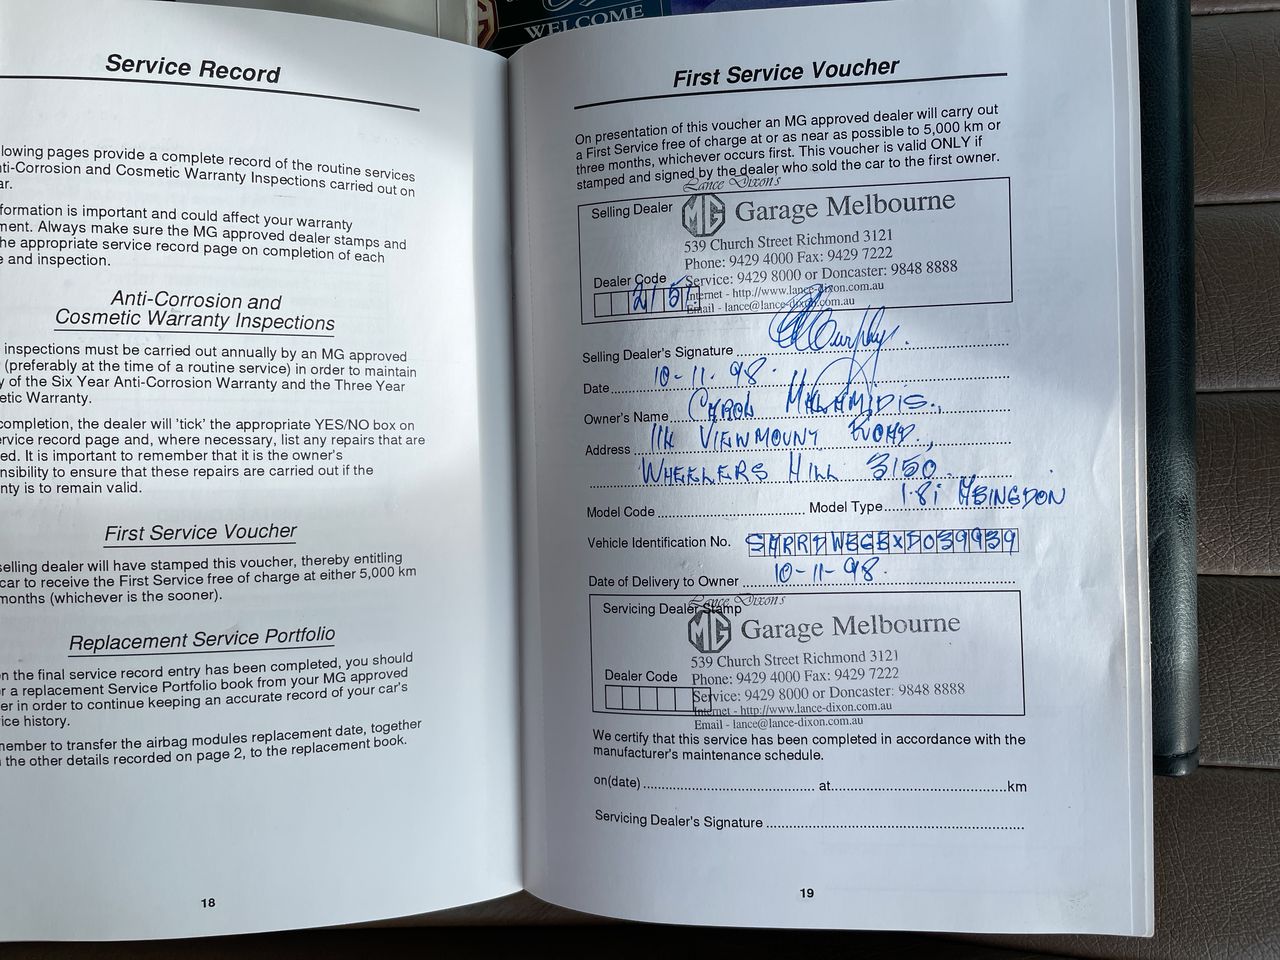 WELCOME
Service Record
lowing pages provide a complete record of the routine services
nti-Corrosion and Cosmetic Warranty Inspections carried out on
ar.
formation is important and could affect your warranty
ment. Always make sure the MG approved dealer stamps and
he appropriate service record page on completion of each
e and inspection.
Anti-Corrosion and
Cosmetic Warranty Inspections
inspections must be carried out annually by an MG approved
(preferably at the time of a routine service) in order to maintain
y of the Six Year Anti-Corrosion Warranty and the Three Year
etic Warranty.
completion, the dealer will 'tick' the appropriate YES/NO box on
ervice record page and, where necessary, list any repairs that are
ed. It is important to remember that it is the owner's
nsibility to ensure that these repairs are carried out if the
nty is to remain valid.
First Service Voucher
selling dealer will have stamped this voucher, thereby entitling
car to receive the First Service free of charge at either 5,000 km
months (whichever is the sooner).
Replacement Service Portfolio
n the final service record entry has been completed, you should
r a replacement Service Portfolio book from your MG approved
er in order to continue keeping an accurate record of your car's
ice history.
member to transfer the airbag modules replacement date, together
the other details recorded on page 2, to the replacement book.
18
First Service Voucher
On presentation of this voucher an MG approved dealer will carry out
a First Service free of charge at or as near as possible to 5,000 km or
three months, whichever occurs first. This voucher is valid ONLY if
stamped and signed by the dealer who sold the car to the first owner.
Lance Dixon's
Selling Dealer MG Garage Melbourne
539 Church Street Richmond 3121
Phone: 9429 4000 Fax: 9429 7222
Dealer Code Service: 9429 8000 or Doncaster: 9848 8888
2151 Internet - http://www.lance-dixon.com.au
Email - lance@lance-dixon.com.au
Selling Dealer's Signature Murphy
Date 10-11.98.
Owner's Name CAROL MALAMIDIS.,
Address 11K VIEWMOUNT ROAD.,
WHEELERS HILL 3150
Model Code Model Type 1.8i ABINGDON
Vehicle Identification No. SARRDWBGBXD039939
Date of Delivery to Owner 10-11-98.
Lance Dixon's
Servicing Dealer Stamp MG Garage Melbourne
539 Church Street Richmond 3121
Dealer Code Phone: 9429 4000 Fax: 9429 7222
Service: 9429 8000 or Doncaster: 9848 8888
Internet - http://www.lance-dixon.com.au
Email - lance@lance-dixon.com.au
We certify that this service has been completed in accordance with the
manufacturer's maintenance schedule.
on(date) at km
Servicing Dealer's Signature
19